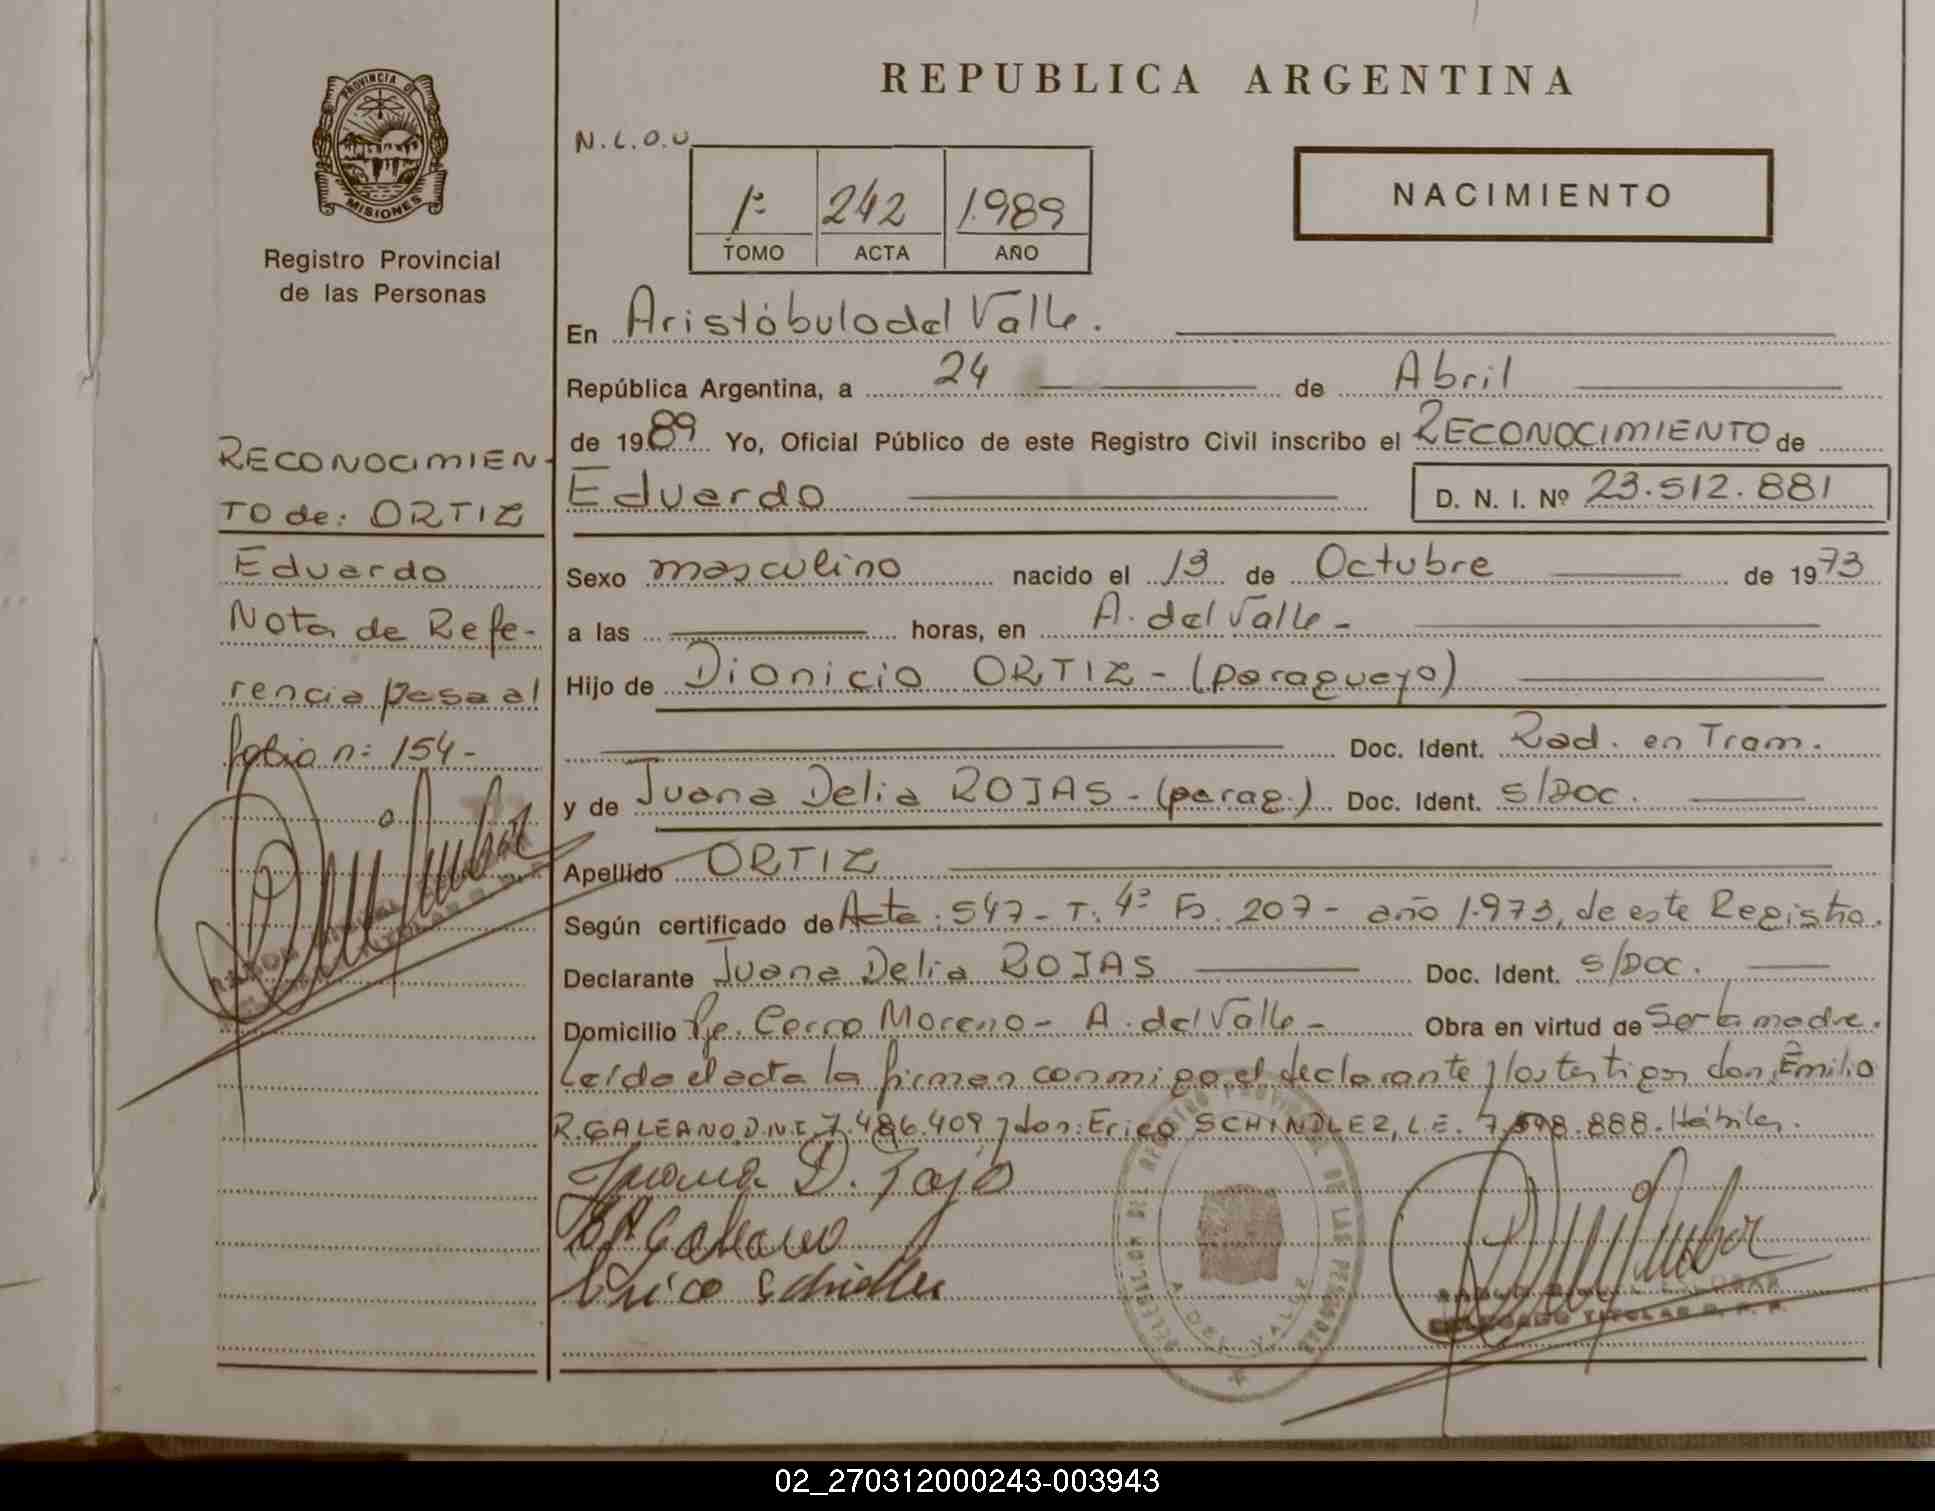 REPUBLICA ARGENTINA
PROVINCIA DE
MISIONES
Registro Provincial
de las Personas
N.L.O.U
1º 242 1.989
TOMO ACTA AÑO
NACIMIENTO
En Aristóbulo del Valle.
República Argentina, a 24 de Abril
de 1989 Yo, Oficial Público de este Registro Civil inscribo el RECONOCIMIENTO de
Eduardo D. N. I. Nº 23.512.881
Sexo masculino nacido el 13 de Octubre de 1973
a las horas, en A. del Valle -
Hijo de Dionicio ORTIZ - (paraguayo)
Doc. Ident. Rad. en Tram.
y de Juana Delia ROJAS - (parag.) Doc. Ident. S/DOC.
Apellido ORTIZ
Según certificado de Acta: 547 - T. 4º Fº. 207 - año 1.973, de este Registro.
Declarante Juana Delia ROJAS Doc. Ident. S/DOC.
Domicilio Pje. Cerro Moreno - A. del Valle - Obra en virtud de Ser la madre.
Leída el acta la firman conmigo, el declarante y los testigos don: Emilio
R. GALEANO, D.N.I. 7.486.409 y don: Erico SCHINDLER, L.E. 7.598.888. Hábiles.
Juana D. Rojas
E R Galeano
Erico Schindler
DELEGACION DEL REGISTRO PROVINCIAL DE LAS PERSONAS
A. DEL VALLE
DELEGADO TITULAR R. P. P.
RECONOCIMIEN-
TO de: ORTIZ
Eduardo
Nota de Refe-
rencia pasa al
folio n: 154-
02_270312000243-003943